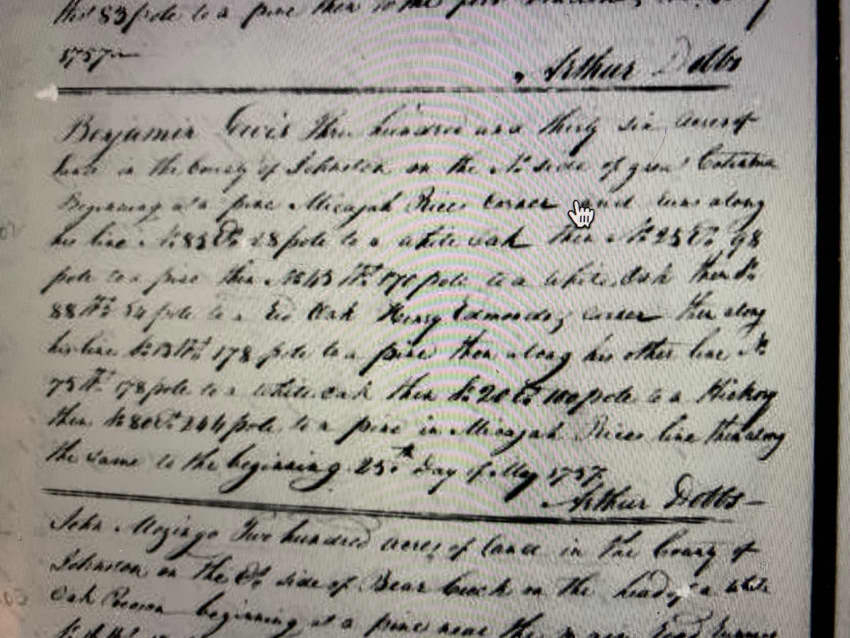 this 83 pole to a pine then to the
1757
Arthur Dobbs
Benjamin Lewis Three hundred and thirty six acres of
land in the County of Johnston on the No. side of great Cotentna
Beginning at a pine Micajah Rices Corner and runs along
his line No. 85 Et. 28 pole to a white Oak then No. 25 Et. 98
pole to a pine then No. 43 Wt. 170 pole to a white Oak then So.
88 Wt. 54 pole to a Red Oak Henry Edmonds corner then along
his line So. 13 Wt. 178 pole to a pine then along his other line No.
75 Wt. 178 pole to a white oak then So. 20 Et. 100 pole to a Hickory
then So. 80 Et. 244 pole to a pine in Micajah Rices line then along
the same to the beginning 25th Day of May 1757
Arthur Dobbs
John Mozingo Two hundred acres of land in the County of
Johnston on the Et. side of Bear Creek on the head of a white
Oak beginning at a pine near the